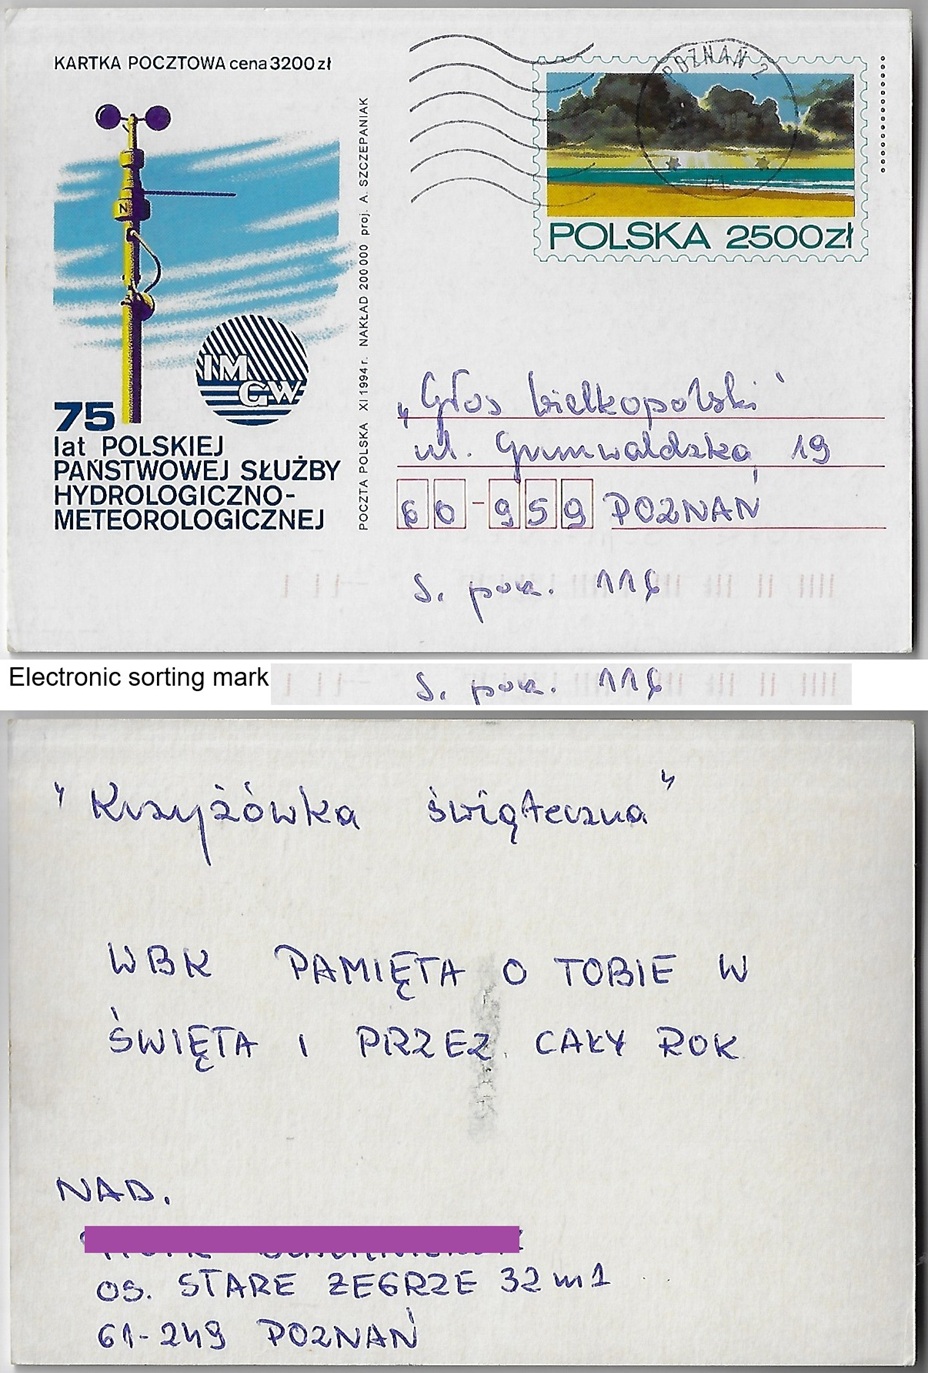 KARTKA POCZTOWA cena 3200 zł
POZNAŃ 2
POLSKA 2500zł
N
IM
GW
75
lat POLSKIEJ
PAŃSTWOWEJ SŁUŻBY
HYDROLOGICZNO-
METEOROLOGICZNEJ
POCZTA POLSKA XI 1994 r. NAKŁAD 200 000 proj. A. SZCZEPANIAK
„Głos Wielkopolski"
ul. Grunwaldzka 19
60-959 POZNAŃ
S. pok. 116
Electronic sorting mark
S. pok. 116
"Krzyżówka świąteczna"
WBK PAMIĘTA O TOBIE W
ŚWIĘTA I PRZEZ CAŁY ROK
NAD.
OS. STARE ŻEGRZE 32 m 1
61-249 POZNAŃ